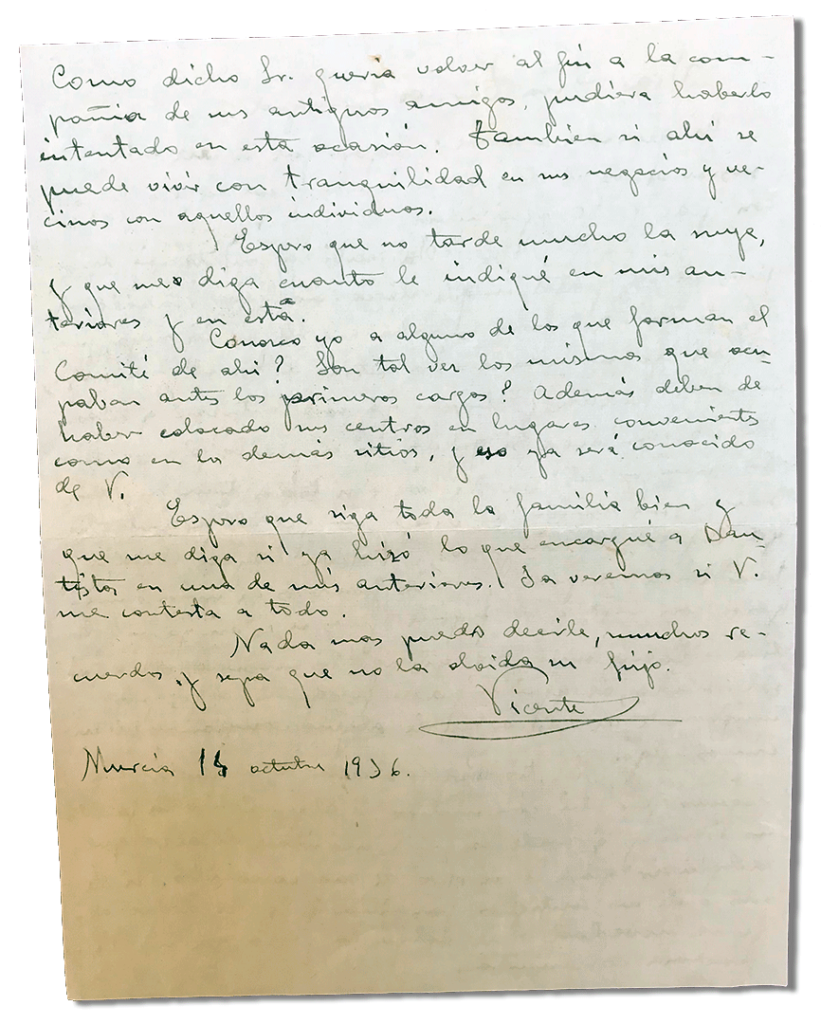 Como dicho Sr. queria volver al fin a la com-
pañia de sus antiguos amigos, pudiera haberlo
intentado en esta ocasión. Tambien si ahi se
puede vivir con tranquilidad en sus negocios y ve-
cinos con aquellos individuos.
Espero que no tarde mucho la suya,
y que me diga cuanto le indiqué en mis an-
teriores y en esta.
Conozco yo a alguno de los que forman el
Comité de ahi? Son tal vez los mismos que ocu-
paban antes los primeros cargos? Además deben de
haber colocado sus centros en lugares convenientes
como en los demás sitios, y eso ya será conocido
de V.
Espero que siga toda la familia bien y
que me diga si ya hizo lo que encargué a
en una de mis anteriores. Ya veremos si V.
me contesta a todo.
Nada mas puedo decirle, muchos re-
cuerdos, y sepa que no la olvida su hijo.
Vicente
Murcia octubre 1936.